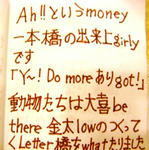 Ah!!というmoney
一本橋の出来上girly
です
「Yー! Do moreありgot!」
動物たちは大喜be
there 金太lowのつくって
くLetter橋をwhatたりました